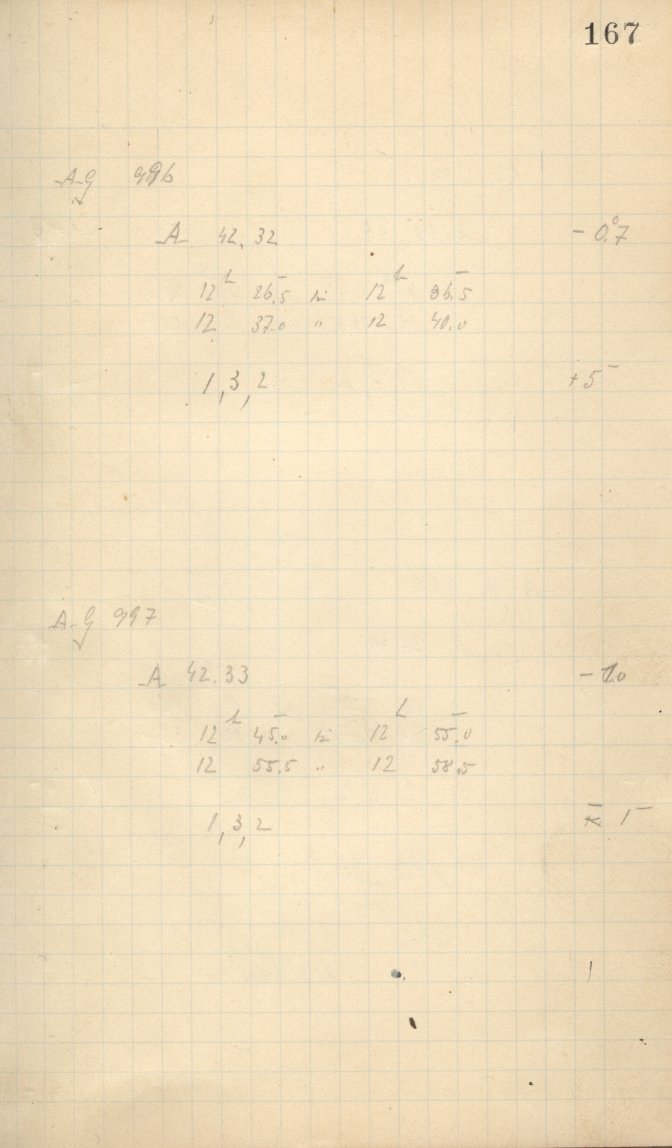 167
AG 996
A 42.32 - 0°.7
12h 26.5 bis 12h 36.5
12 37.0 " 12 40.0
1, 3, 2 + 5
AG 997
A 42.33 - 1.0
12h 45.0 bis 12h 55.0
12 55.5 " 12 58.5
1, 3, 2 1